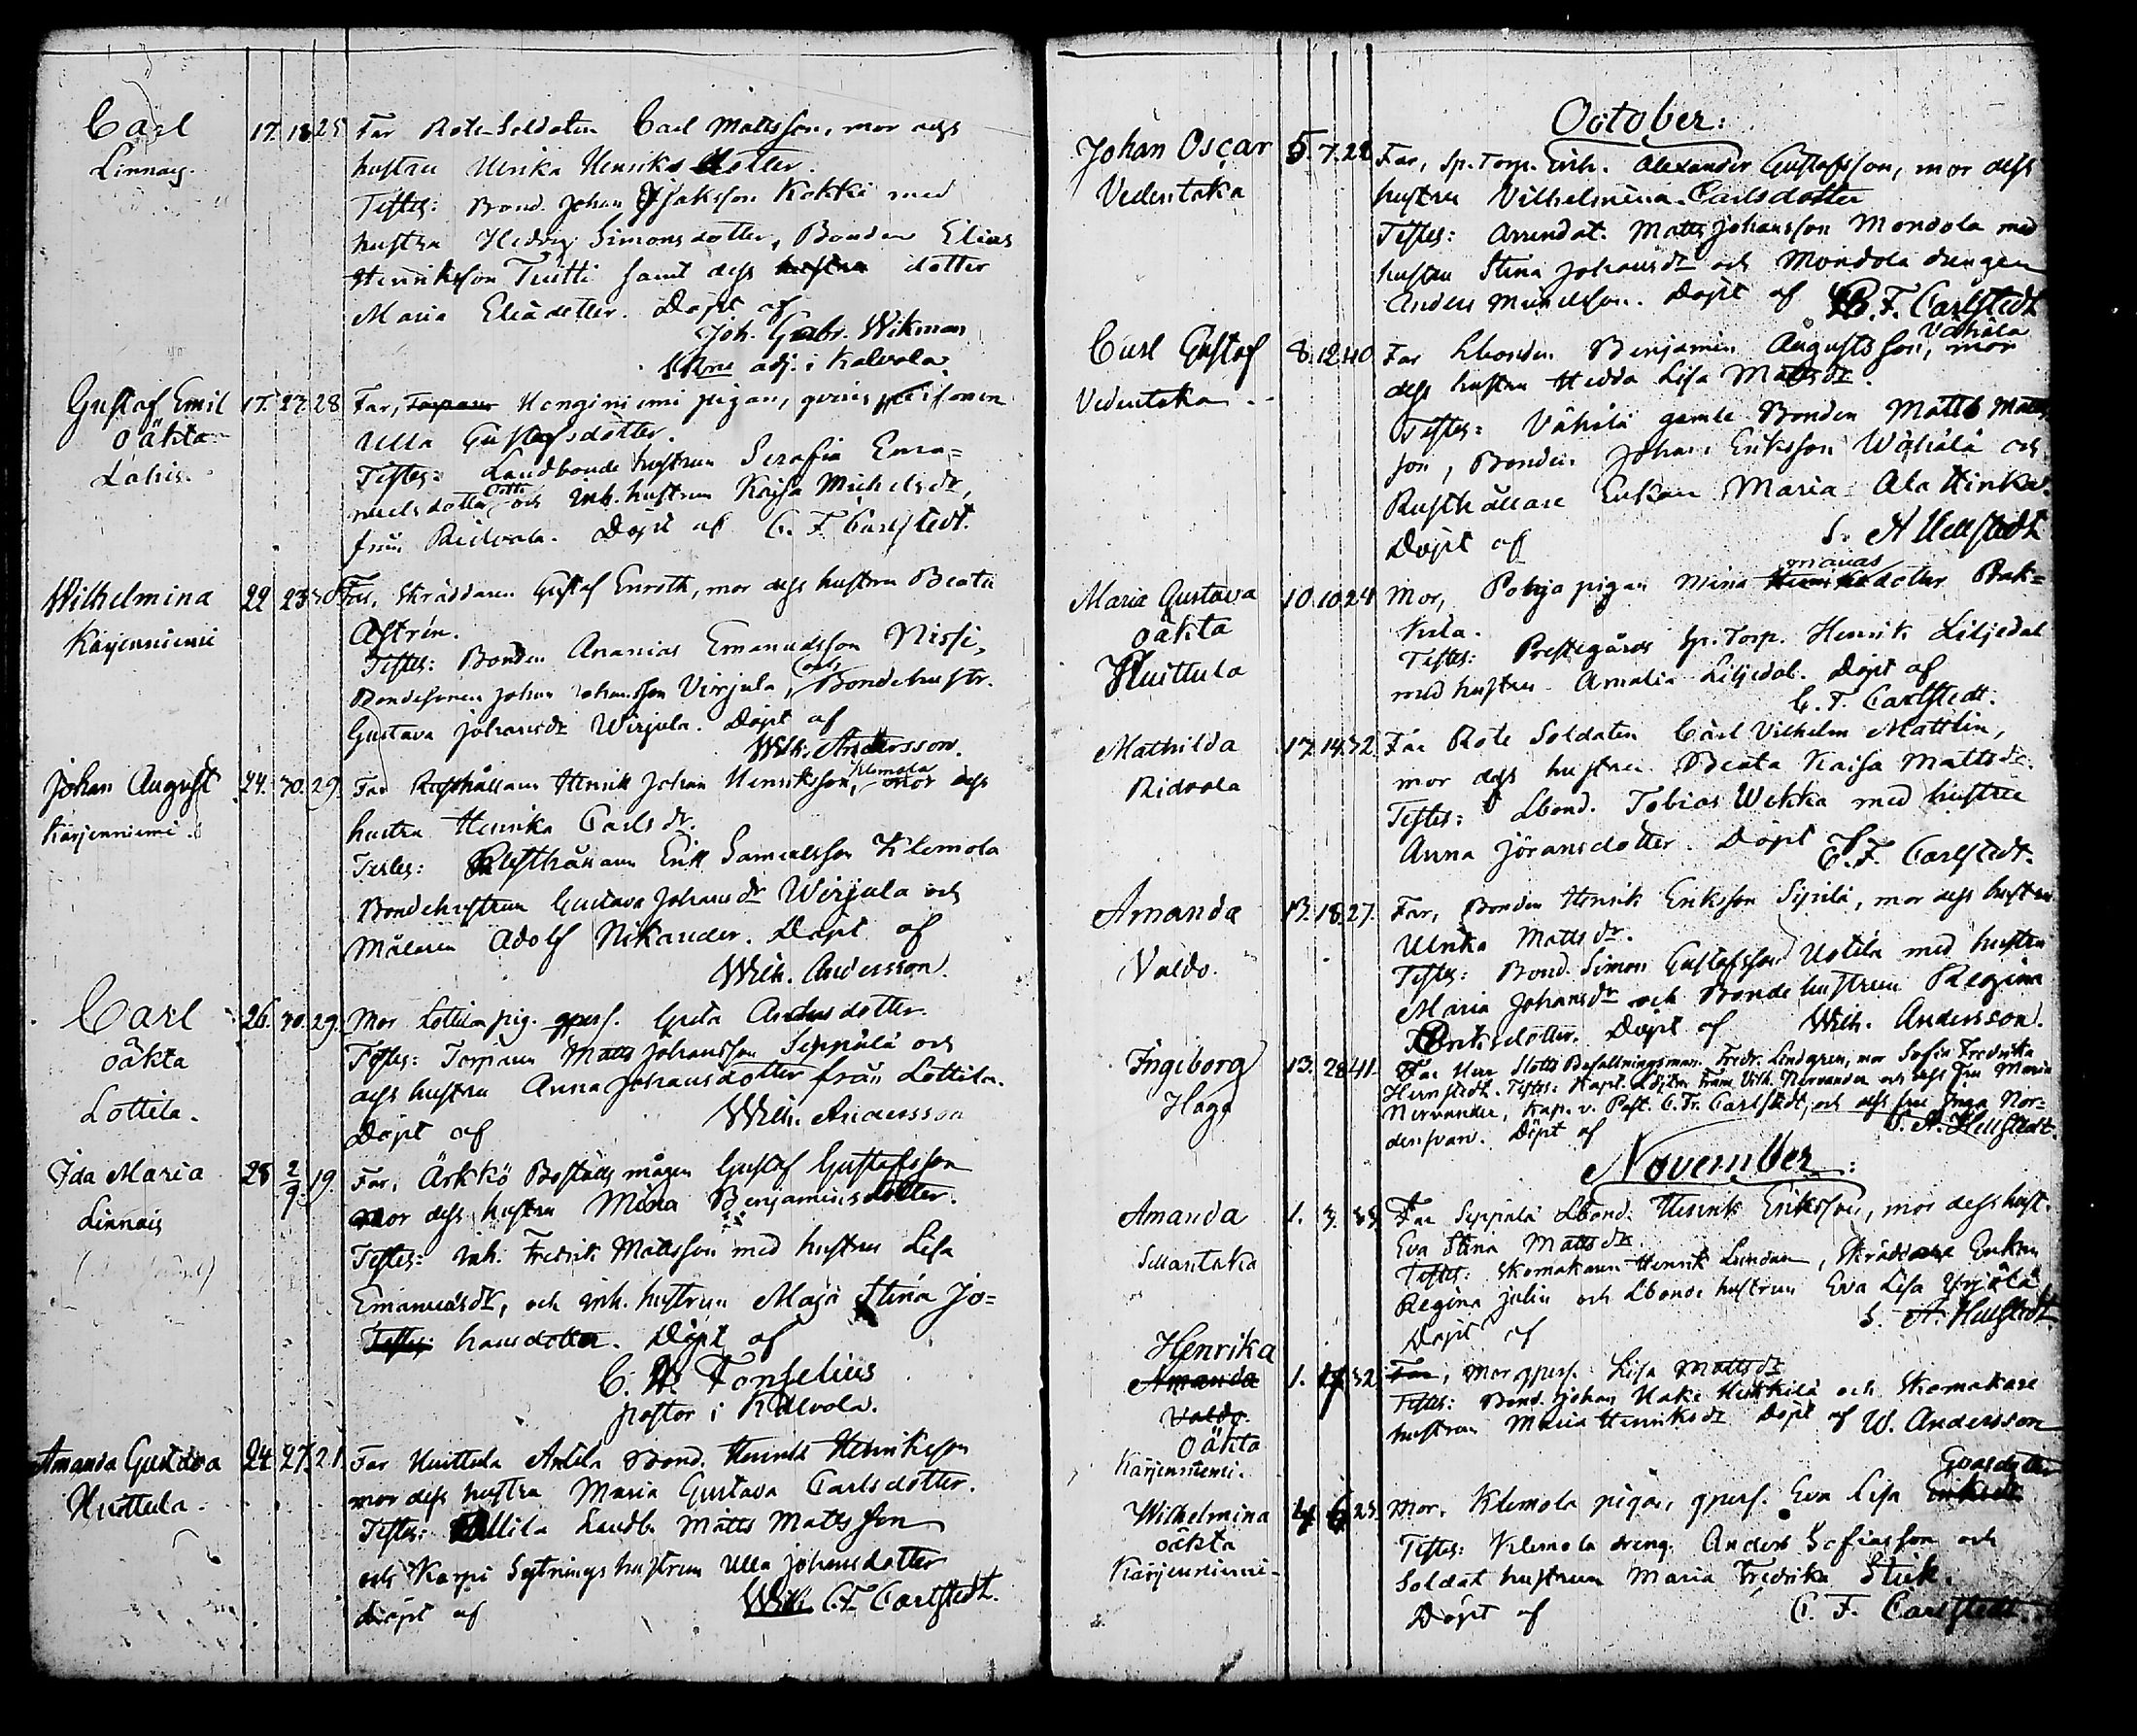 Carl 17. 18. 25 Far Rote-Soldaten Carl Mattsson, mor dess
Linnais. hustru Ulrika Henriks dotter.
Testes: Bond. Johan Isaksson Kokki med
hustru Hedvig Simonsdotter, Bonden Elias
Henriksson Tuitti samt dess hustru dotter
Maria Eliædotter. Döpt af
Joh. Gabr. Wikman
adj. i Kalvola.
Gustaf Emil 17. 27. 28 Far, Torparen Henginiemi pigan, qvinspersonen
oäkta Ulla Gustafsdotter.
Lahis. Testes: Landbonde hustrun Serafia Ema=
nuelsdotter och inh. hustrun Kajsa Michelsdr,
från Ridvala. Döpt af C. F. Carlstedt.
Wilhelmina 22 23 30 Far, Skräddaren Gustaf Enroth, mor dess hustru Beata
Karjenniemi Astrén.
Testes: Bonden Ananias Emanuelsson Nissi,
Bondesonen Johan Johansson Virjula, och Bondehustr.
Gustava Johansdr Wirjula. Döpt af
Wilh. Andersson.
Johan August 24. 30. 29. Far Rusthållaren Henrik Johan Henriksson, Klemola mor dess
Karjenniemi. hustru Henrika Carlsdr.
Testes: Rusthållaren Erik Samuelsson Klemola
Bondehustrun Gustava Johansdr Wirjula och
Målaren Adolf Nikander. Döpt af
Wilh. Andersson.
Carl 26. 30. 29. Mor Lottila pig. qpers. Greta Andersdotter.
oäkta Testes: Torparen Matts Johansson Seppälä och
Lottila. dess hustru Anna Johansdotter från Lottila.
Döpt af Wilh. Andersson
Ida Maria 28 2/9. 19. Far, Ärkkö Bostads mågen Gustaf Gustafsson
Linnais mor dess hustru Mina Benjaminsdotter.
Testes: inh. Fredrik Mattsson med hustru Lisa
Emanuelsdr, och inh. hustrun Maja Stina Jo=
Testes: hansdotter. Döpt af
C. W. Fonselius
pastor i Kalvola.
Amanda Gustava 24. 27. 21. Far Huittula Anttila Bond. Henrik Henriksson
Huittula. mor dess hustru Maria Gustava Carlsdotter.
Testes: Landb. Matts Mattsson
och Karpi Sytningshustrun Ulla Johansdotter
Döpt af Wilh. C. F. Carlstedt.
October:
Johan Oscar 5. 7. 28 Far, Sp. Torp. Enkl. Alexander Gustafsson, mor dess
Vedentaka hustru Vilhelmina Carlsdotter
Testes: Arrendat. Matts Johansson Mondola med
hustru Stina Johansdr och Mondola drengen
Anders Michelsson. Döpt af C. F. Carlstedt
Carl Gustaf 8. 12. 40 Far Lbonden Benjamin Augustsson, Vähälä mor
Vedentaka dess hustru Hedda Lisa Mattsdr.
Testes: Vähälä gamle Bonden Matts Matts
son, Bonden Johan Eriksson Wähälä och
Rusthållare Enkan Maria Ala Hinka.
Döpt af S. A. Hellstedt
Maria Gustava 10. 10. 24 Mor, Pohja pigan Mina Henriks manas dotter Rak=
oäkta kula.
Huittula Testes: Prestegårds Sp. Torp. Henrik Liljedal
med hustru Amalia Liljedal. Döpt af
C. F. Carlstedt.
Mathilda 13. 14. 32. Far Rote Soldaten Carl Vilhelm Mattlin,
Ridvala mor dess hustru Beata Kaisa Mattsdr.
Testes: Lbond. Tobias Wekka med hustru
Anna Jöransdotter. Döpt af
C. F. Carlstedt.
Amanda 13. 18. 27. Far, Bonden Henrik Eriksson Sipilä, mor dess hustru
Valdo. Ulrika Mattsdr.
Testes: Bond. Simon Gustafsson Uotila med hustru
Maria Johansdr och Bonde hustrun Regina
Eriksdotter. Döpt af Wilh. Andersson.
Ingeborg 13. 28. 41. Far Herr Slotts Befallningsman Fredr. Lindgren, mor Sofia Fredrika
Haga Hernstedt. Testes: Kapt. Löjtn. Frans Vilh. Nervander och dess fru Maria
Nervander, Kap. v. Past. C. Fr. Carlstedt, och dess fru Inga Nor=
densvan. Döpt af S. A. Hellstedt.
November:
Amanda 1. 3. 35 Far Seppälä Lbond. Henrik Eriksson, mor dess hust.
Suontaka Eva Stina Mattsdr.
Testes: Skomakaren Henrik Lundan, Skräddare Enkan
Regina Julin och Lbonde hustrun Eva Lisa Yrjölä,
Döpt af S. A. Hellstedt
Henrika
Amanda 1. 17. 32 Far, Mor qpers. Lisa Mattsdr
Valdo. Testes: Bond. Johan Hake Heikkilä och Skomakare
oäkta hustrun Maria Henriksdr Döpt af W. Andersson
Karjenniemi.
Evasdotter
Wilhelmina 4 6 25. Mor, Klemola pigan, qpers. Eva Lisa Eriksdr
oäkta Testes: Klemola dreng. Anders Sofiasson och
Karjenniemi Soldat hustrun Maria Fredrika Stick.
Döpt af C. F. Carlstedt.